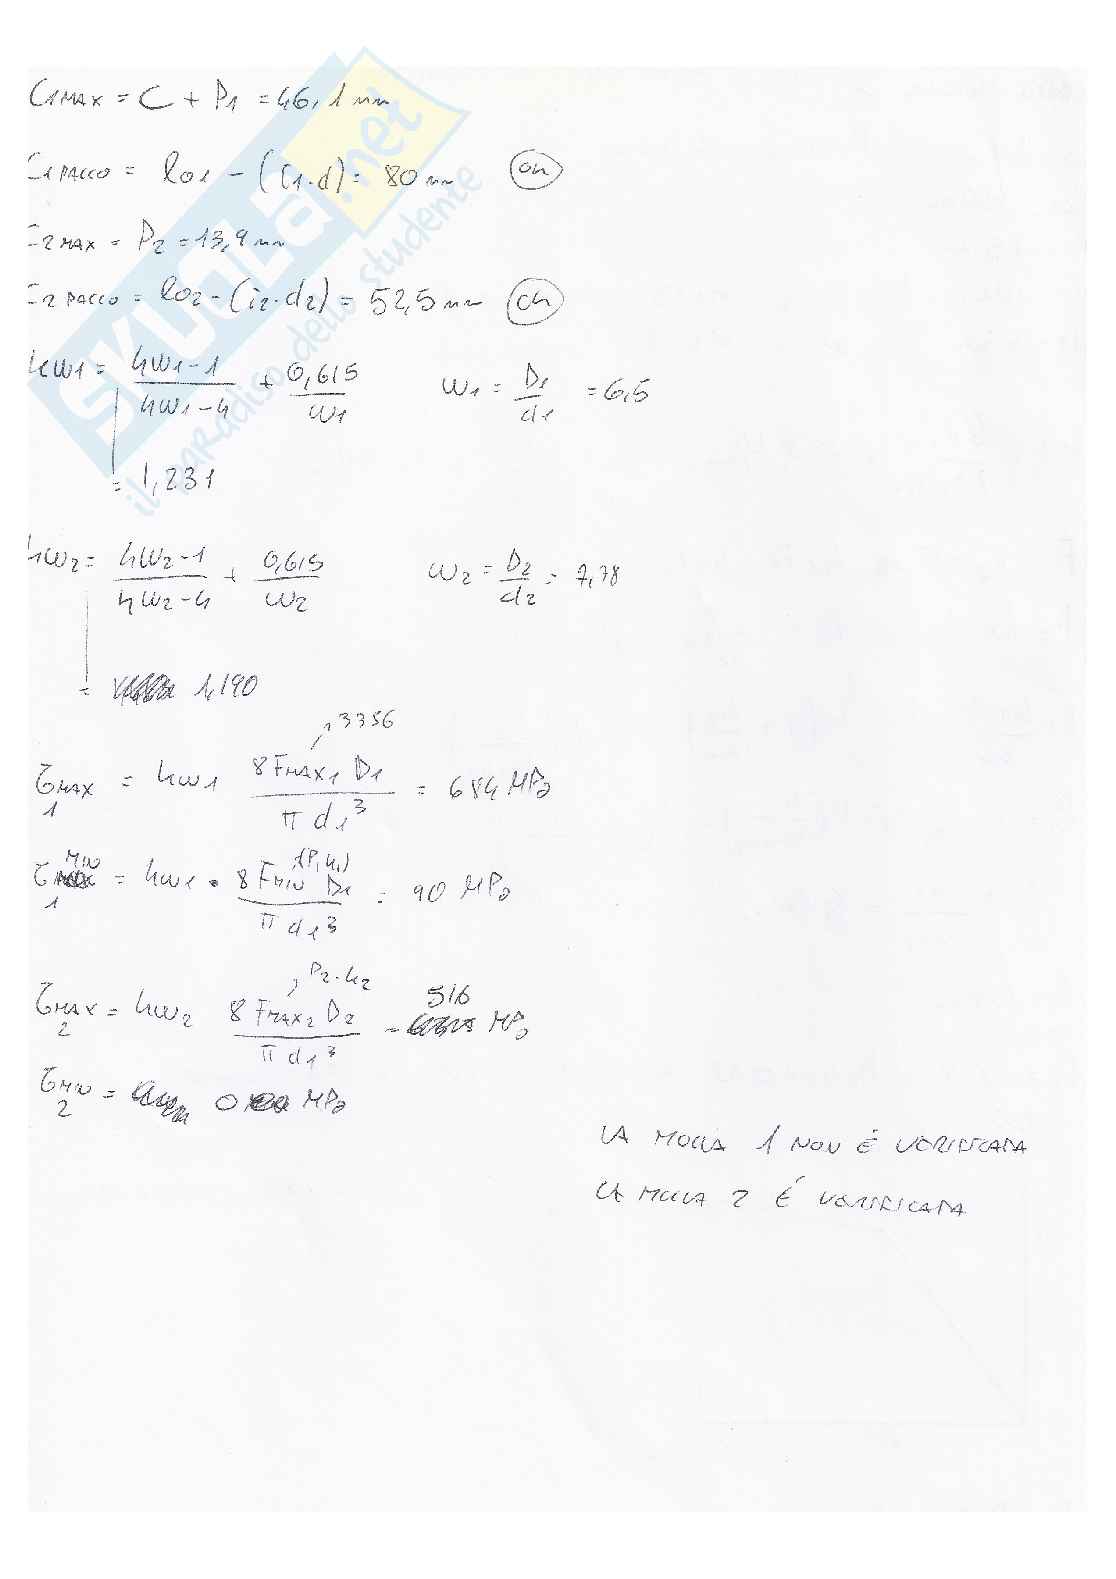 C1MAX = C + P1 = 46,1 mm
C1 PACCO = l01 - (i1·d) = 80 mm OK
C2 MAX = P2 = 13,9 mm
C2 PACCO = l02 - (i2·d2) = 52,5 mm OK
kw1 = (4w1-1)/(4w1-4) + 0,615/w1 w1 = D1/d1 = 6,5
= 1,231
kw2 = (4w2-1)/(4w2-4) + 0,615/w2 w2 = D2/d2 = 7,78
= 1,190
3356
τMAX 1 = kw1 8 FMAX1 D1 / π d1³ = 684 MPa
τMIN 1 = kw1 · 8 FMIN D1 / π d1³ = 90 MPa
(P1 k1)
P2·k2
τMAX 2 = kw2 8 FMAX2 D2 / π d1³ = 516 MPa
τMIN 2 = 0 MPa
LA MOLLA 1 NON È VERIFICATA
LA MOLLA 2 É VERIFICATA
SKUOLA.net
il paradiso dello studente